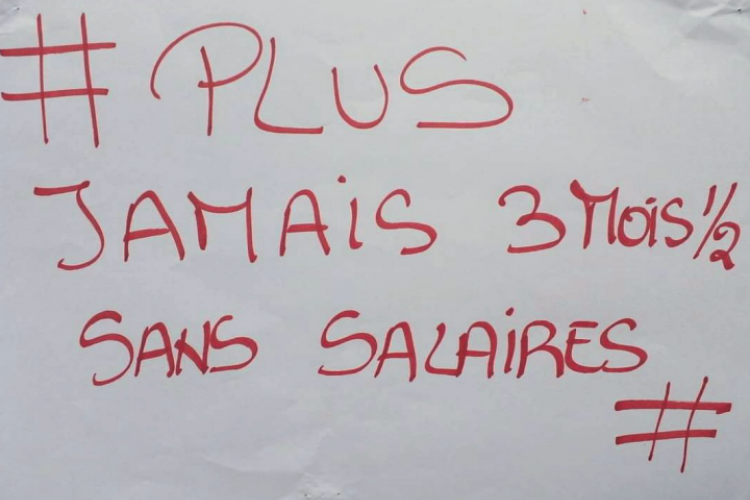 # PLUS
JAMAiS 3 MOiS 1/2
SANS SALAiRES
#